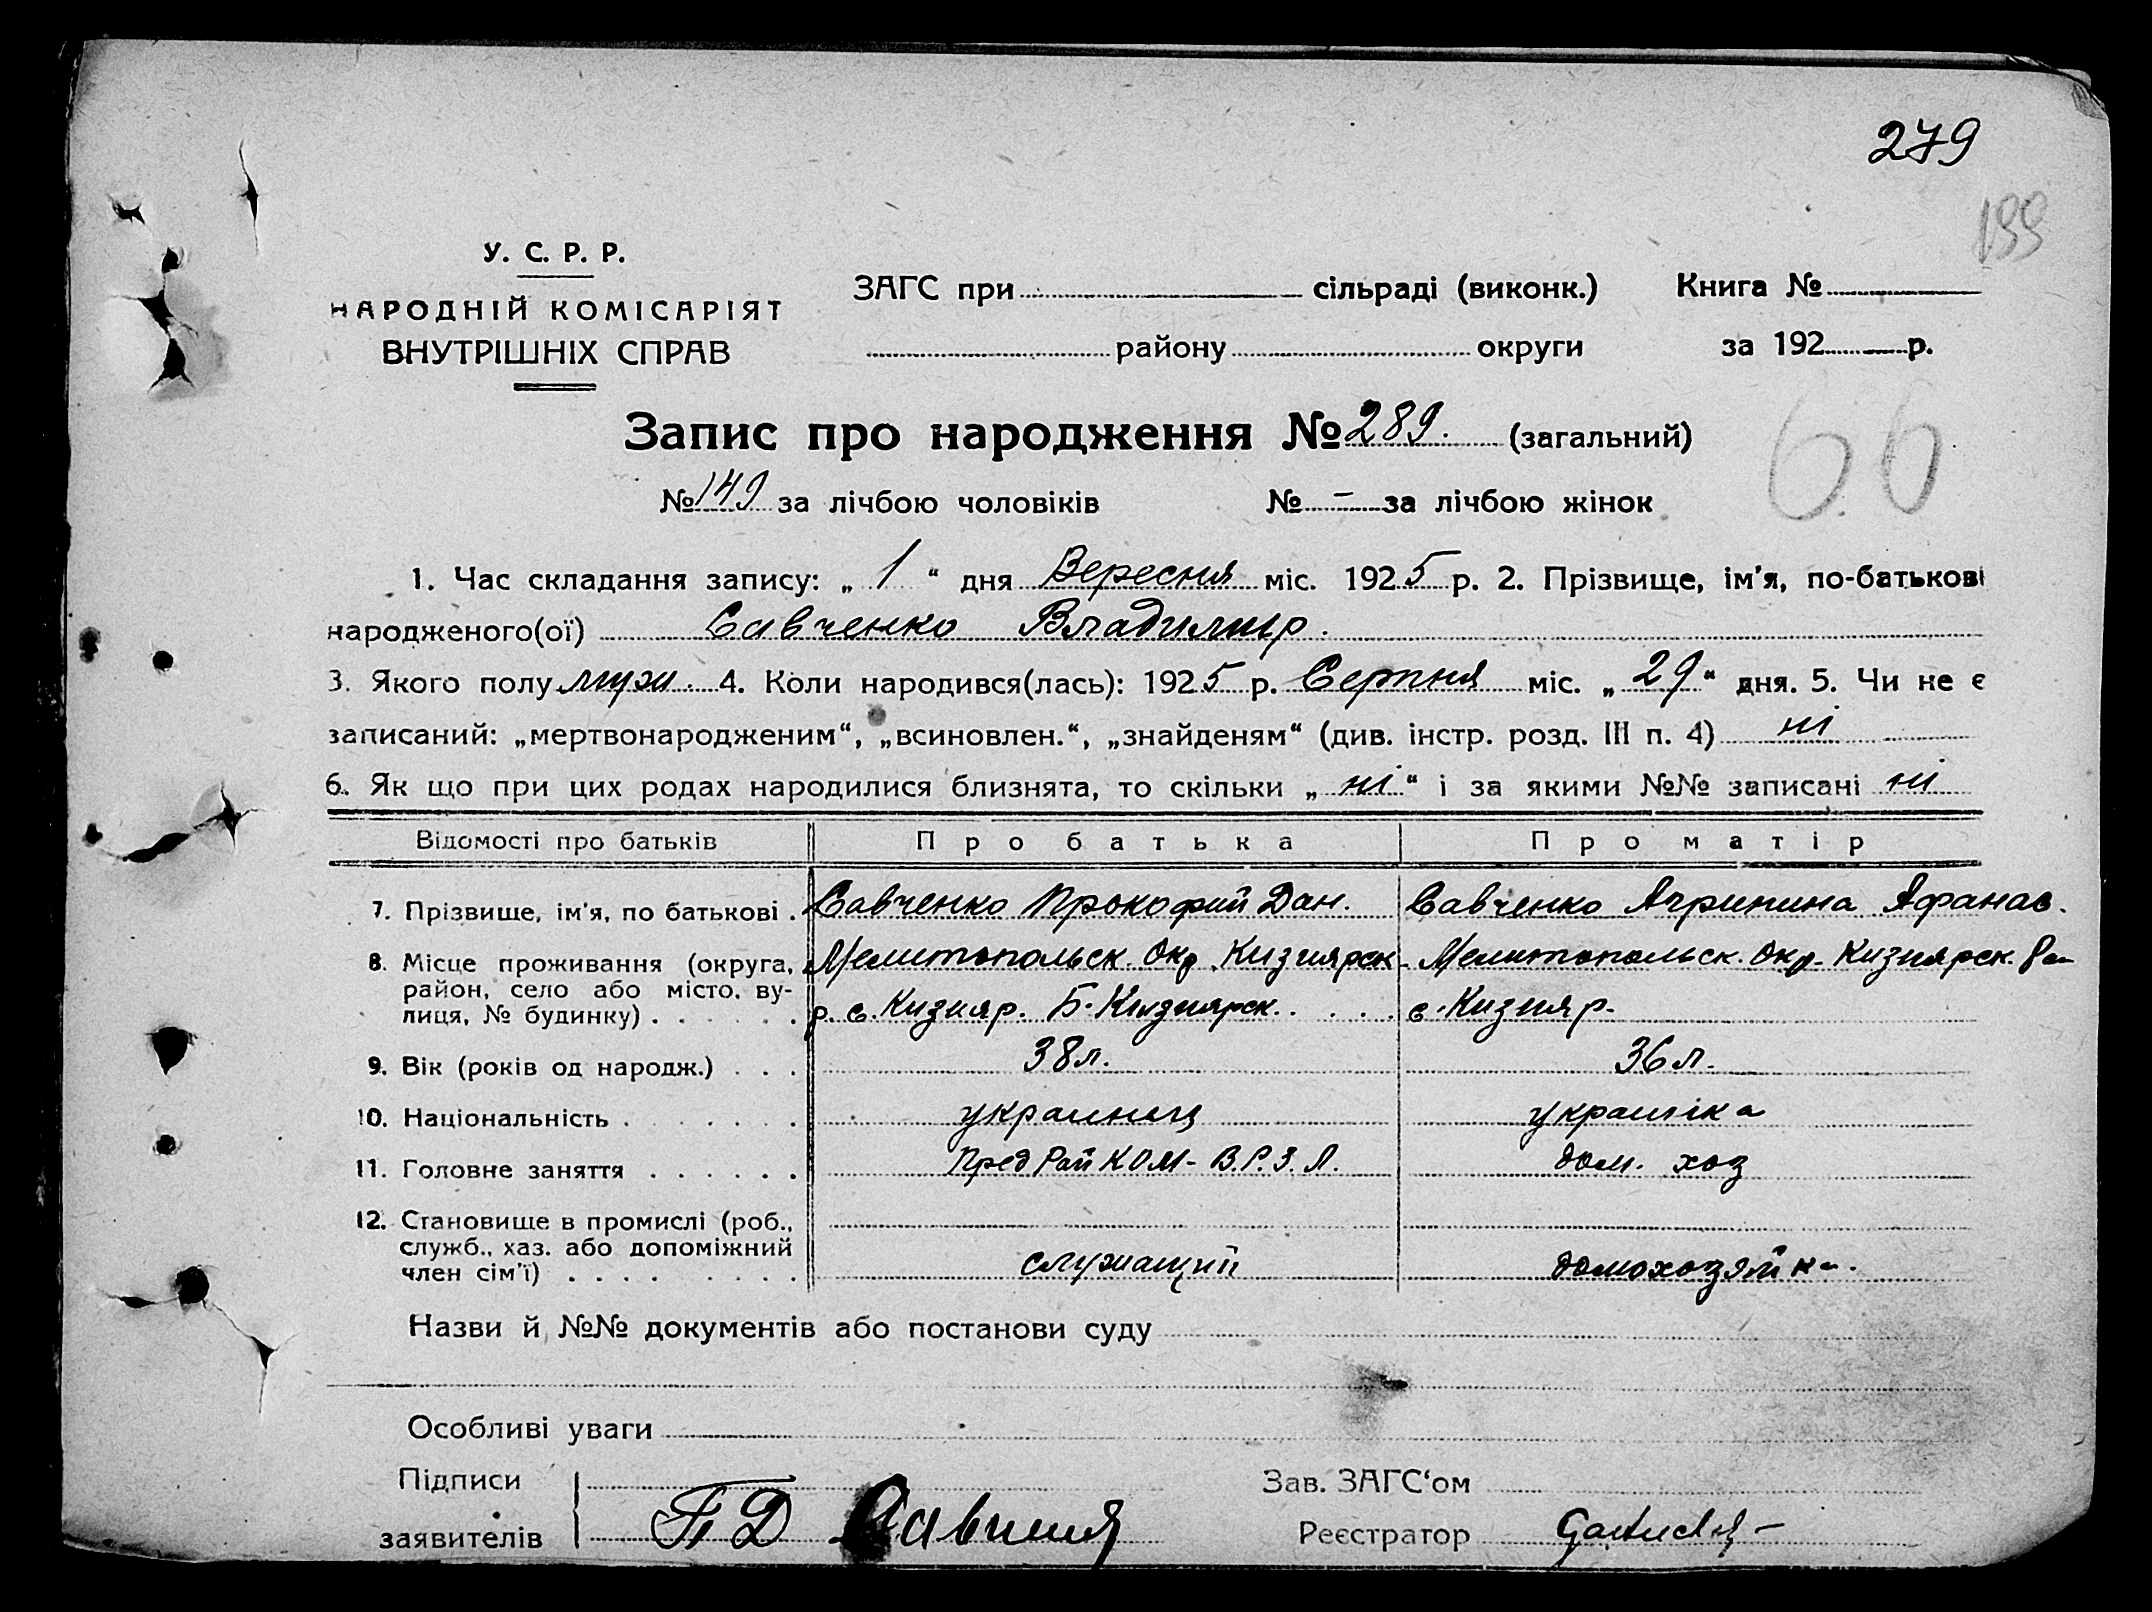 279
199
У. С. Р. Р.
НАРОДНІЙ КОМІСАРІЯТ
ВНУТРІШНІХ СПРАВ
ЗАГС при сільраді (виконк.) Книга №
району округи за 192 р.
Запис про народження № 289. (загальний)
66
№ 149 за лічбою чоловіків № – за лічбою жінок
1. Час складання запису: „ 1 “ дня Вересня міс. 1925 р. 2. Прізвище, ім'я, по-батькові
народженого(ої) Савченко Владимир.
3. Якого полу муж. 4. Коли народився(лась): 1925 р. Серпня міс. „ 29 “ дня. 5. Чи не є
записаний: „мертвонародженим“, „всиновлен.“, „знайденям“ (див. інстр. розд. III п. 4) ні
6. Як що при цих родах народилися близнята, то скільки „ ні “ і за якими №№ записані ні
Відомості про батьків Про батька Про матір
7. Прізвище, ім'я, по батькові . Савченко Прокофий Дан. Савченко Агрипина Афанас.
8. Місце проживання (округа, Мелитопольск. Окр. Кизиярск- Мелитопольск. Окр. Кизиярск. Ра
район, село або місто, ву-
лиця, № будинку) . . . . . . р. с. Кизияр. Б. Кизиярск. с. Кизияр.
9. Вік (років од народж.) . . . 38 л. 36 л.
10. Національність . . . . . . . украинец украінка
11. Головне заняття . . . . . . Пред Рай КОМ - В.Р.З.Л. дом. хоз
12. Становище в промислі (роб.,
служб., хаз. або допоміжний
член сім'ї) . . . . . . . . служащий домохозяйка.
Назви й №№ документів або постанови суду
Особливі уваги
Підписи Зав. ЗАГС'ом
заявителів П Д Реєстратор